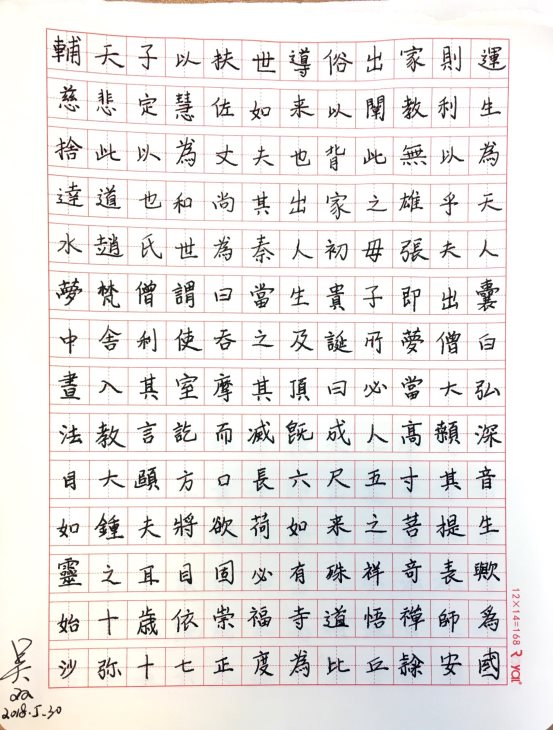 輔天子以扶世導俗出家則運
慈悲定慧佐如来以闡教利生
捨此以為丈夫也背此無以為
達道也和尚其出家之雄乎天
水趙氏世為秦人初毋張夫人
夢梵僧謂曰當生貴子即出囊
中舍利使吞之及誕所夢僧白
晝入其室摩其頂曰必當大弘
法教言訖而滅既成人高顙深
目大頤方口長六尺五寸其音
如鍾夫將欲荷如来之菩提生
靈之耳目固必有殊祥奇表歟
始十歲依崇福寺道悟禪師為
沙弥十七正度為比丘隸安國
12×14=168
吴双
2018.5.30